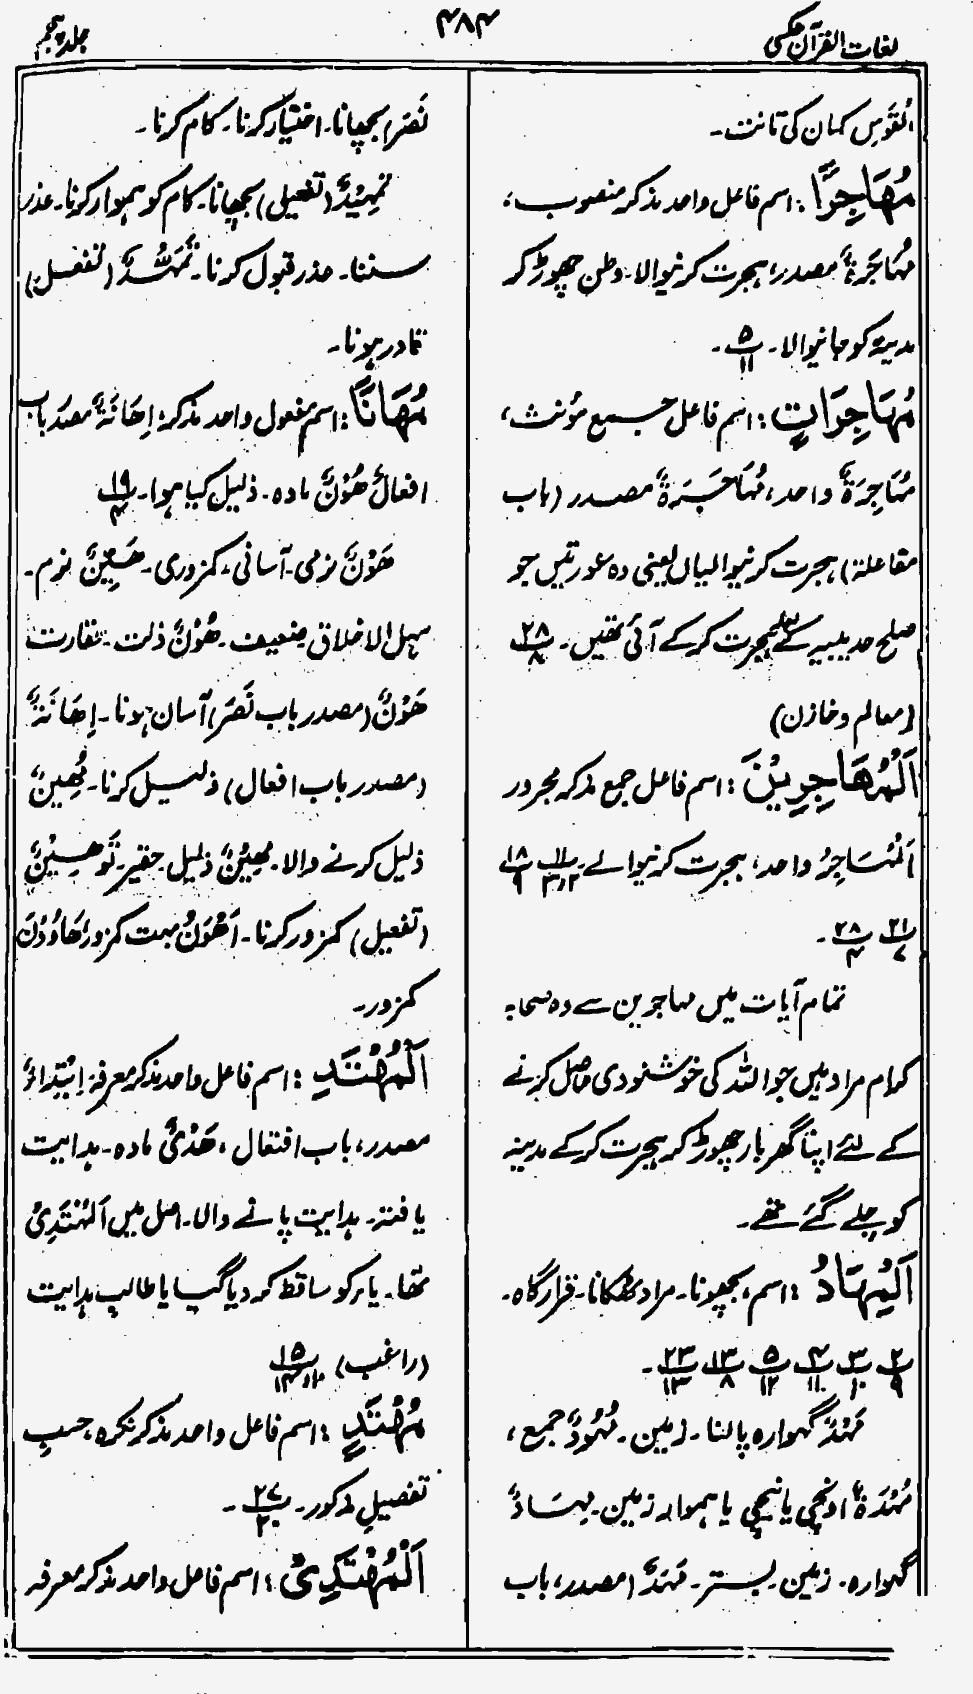 لغات القرآن عکسی
۴۸۴
جلد پنجم
القَوس کمان کی تانت۔
مُهَاجِرًا : اسم فاعل واحد مذکر منصوب،
مُهَاجَرَةٌ مصدر، ہجرت کرنیوالا۔ وطن چھوڑ کر
مدینہ کو جانیوالا۔ پ ۵/۱۱۔
مُهَاجِرَاتٍ : اسم فاعل جمع مؤنث،
مُهَاجِرَةٌ واحد، مُهَاجَرَةٌ مصدر (باب
مفاعلة) ہجرت کرنیوالیاں یعنی وہ عورتیں جو
صلح حدیبیہ کے لئے ہجرت کرکے آئی تھیں۔ پ ۲۸/۸
(معالم وخازن)
اَلْمُهَاجِرِيْنَ : اسم فاعل جمع مذکر مجرور
اَلْمُهَاجِرُ واحد، ہجرت کرنیوالے۔ پ ۱۱/۳،۲ پ ۱۸/۹
پ ۲۱/۷ پ ۲۸/۴۔
تمام آیات میں مہاجرین سے وہ صحابہ
کرام مراد ہیں جو اللہ کی خوشنودی حاصل کرنے
کے لئے اپنا گھر بار چھوڑ کر ہجرت کرکے مدینہ
کو چلے گئے تھے۔
اَلْمِهَادُ : اسم، بچھونا۔ مراد ٹھکانا۔ قرارگاہ۔
پ ۲/۹ پ ۳/۱۰ پ ۴/۱۱ پ ۵/۱۲ پ ۱۳/۸ پ ۲۳/۱۳۔
مَهْدٌ گہوارہ پالنا۔ زمین۔ مُهُوْدٌ جمع،
مُهْدَةٌ اونچی یا نیچی یا ہموار زمین۔ مِهَادٌ
گہوارہ۔ زمین۔ بستر۔ مَهْدٌ (مصدر، باب
نَصَرَ) بچھانا۔ اختیار کرنا۔ کام کرنا۔
تَمْهِيْدٌ (تفعیل) بچھانا۔ کام کو ہموار کرنا۔ عذر
سننا۔ عذر قبول کرنا۔ تَمَهُّدٌ (تفعل)
قادر ہونا۔
مُهَانًا : اسم مفعول واحد مذکر، اِهَانَةٌ مصدر باب
افعال هُوْنٌ مادہ۔ ذلیل کیا ہوا۔ پ ۱۹/۴
هَوْنٌ نرمی۔ آسانی۔ کمزوری۔ هَيِّنٌ نرم۔
سہل الاخلاق ضعیف۔ هُوْنٌ ذلت۔ حقارت
هَوْنٌ (مصدر باب نَصَرَ) آسان ہونا۔ اِهَانَةٌ
(مصدر باب افعال) ذلیل کرنا۔ مُهِيْنٌ
ذلیل کرنے والا۔ مَهِيْنٌ ذلیل حقیر۔ تَوْهِيْنٌ
(تفعیل) کمزور کرنا۔ اَهْوَنُ بہت کمزور
کمزور۔
اَلْمُهْتَدِ : اسم فاعل واحد مذکر معرفہ اِهْتِدَاءٌ
مصدر، باب افتعال، هَدْيٌ مادہ۔ ہدایت
یافتہ۔ ہدایت پانے والا۔ اصل میں اَلْمُهْتَدِيُ
تھا۔ یاء کو ساقط کر دیا گیا یا طالب ہدایت
(راغب) پ ۱۵/۱۴،۱۱
مُهْتَدٍ : اسم فاعل واحد مذکر نکرہ، حسبِ
تفصیلِ مذکور۔ پ ۲۷/۲۰۔
اَلْمُهْتَدِيْ : اسم فاعل واحد مذکر معرفہ